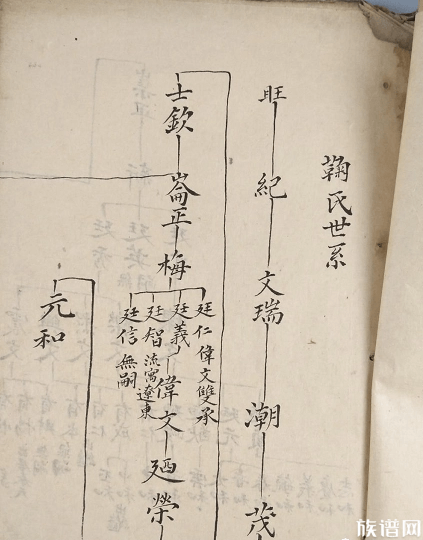 鞠氏世系
旺 紀 文瑞 潮 茂
士欽 崙正 梅
廷仁 偉文雙承
廷義 偉文 廼榮
廷智 流寓遼東
廷信 無嗣
元和
族谱网